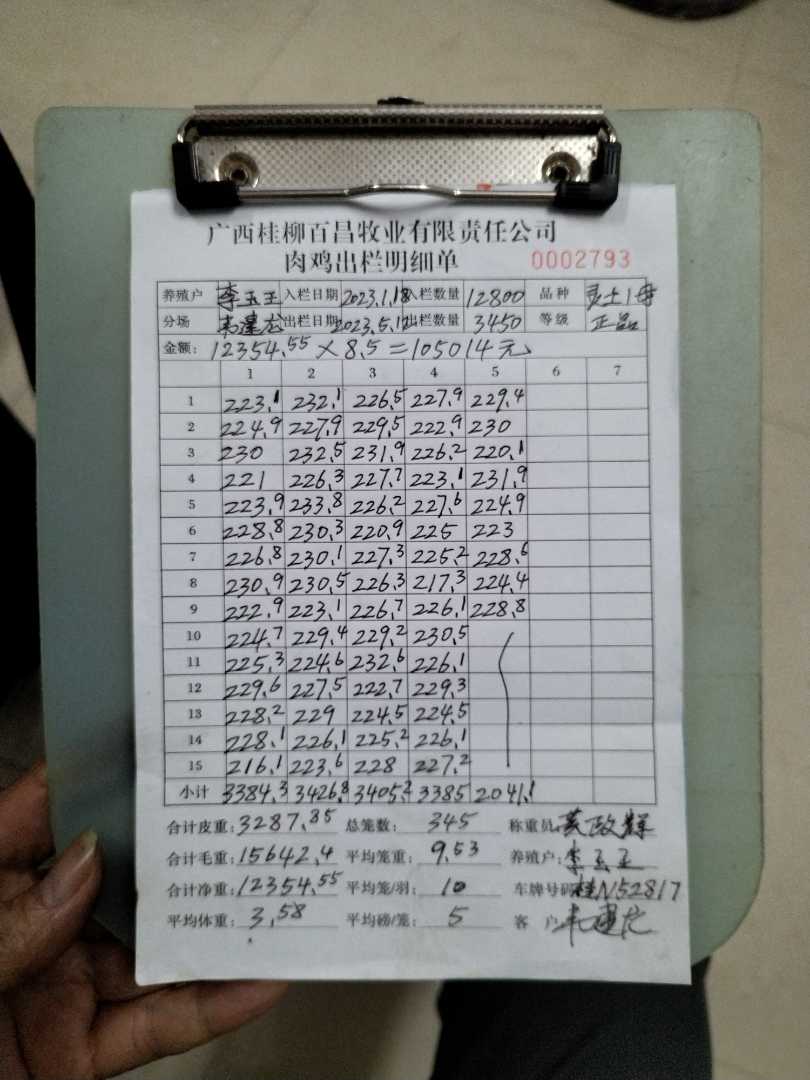 广西桂柳百昌牧业有限责任公司
肉鸡出栏明细单 0002793
养殖户 李玉王 入栏日期 2023.1.18 入栏数量 12800 品种 灵土1号
分场 韦建龙 出栏日期 2023.5.12 出栏数量 3450 等级 正品
金额: 12354.55 × 8.5 = 105014元
1 2 3 4 5 6 7
1 223.1 232.1 226.5 227.9 229.4
2 224.9 227.9 229.5 222.9 230
3 230 232.5 231.9 226.2 220.1
4 221 226.3 227.7 223.1 231.9
5 223.9 233.8 226.2 227.6 224.9
6 228.8 230.3 220.9 225 223
7 226.8 230.1 227.3 225.2 228.6
8 230.9 230.5 226.3 217.3 224.4
9 222.9 223.1 226.7 226.1 228.8
10 224.7 229.4 229.2 230.5
11 225.3 224.6 232.6 226.1
12 229.6 227.5 222.7 229.3
13 228.2 229 224.5 224.5
14 228.1 226.1 225.2 226.1
15 216.1 223.6 228 227.2
小计 3384.3 3426.8 3405.2 3385 2041.1
合计皮重: 3287.85 总笼数: 345 称重员: 黄政辉
合计毛重: 15642.4 平均笼重: 9.53 养殖户: 李玉王
合计净重: 12354.55 平均笼/羽: 10 车牌号码 桂N52817
平均体重: 3.58 平均磅/笼: 5 客户 韦建龙